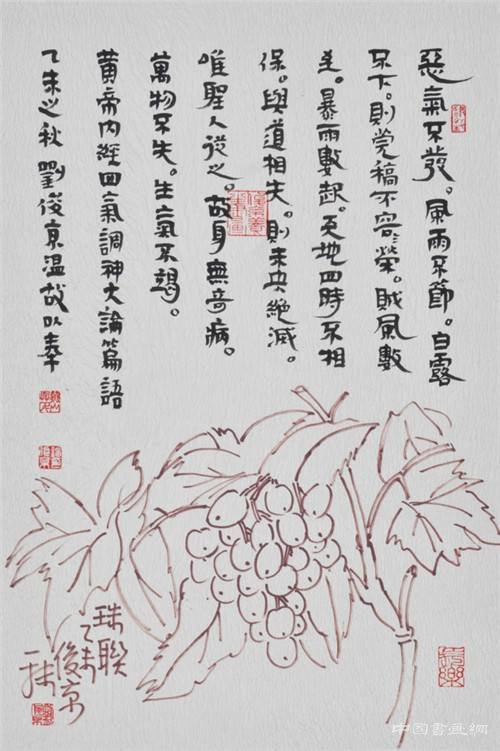 惡氣不發。風雨不節。白露
不下。則菀稿不容榮。賊風數
至。暴雨數起。天地四時不相
保。與道相失。則未央絕滅。
唯聖人從之。故身無奇病。
萬物不失。生氣不竭。
黃帝內經四氣調神大論篇語
乙未之秋 劉俊京溫故以奉
珠聯
乙未
俊京
中国書画網